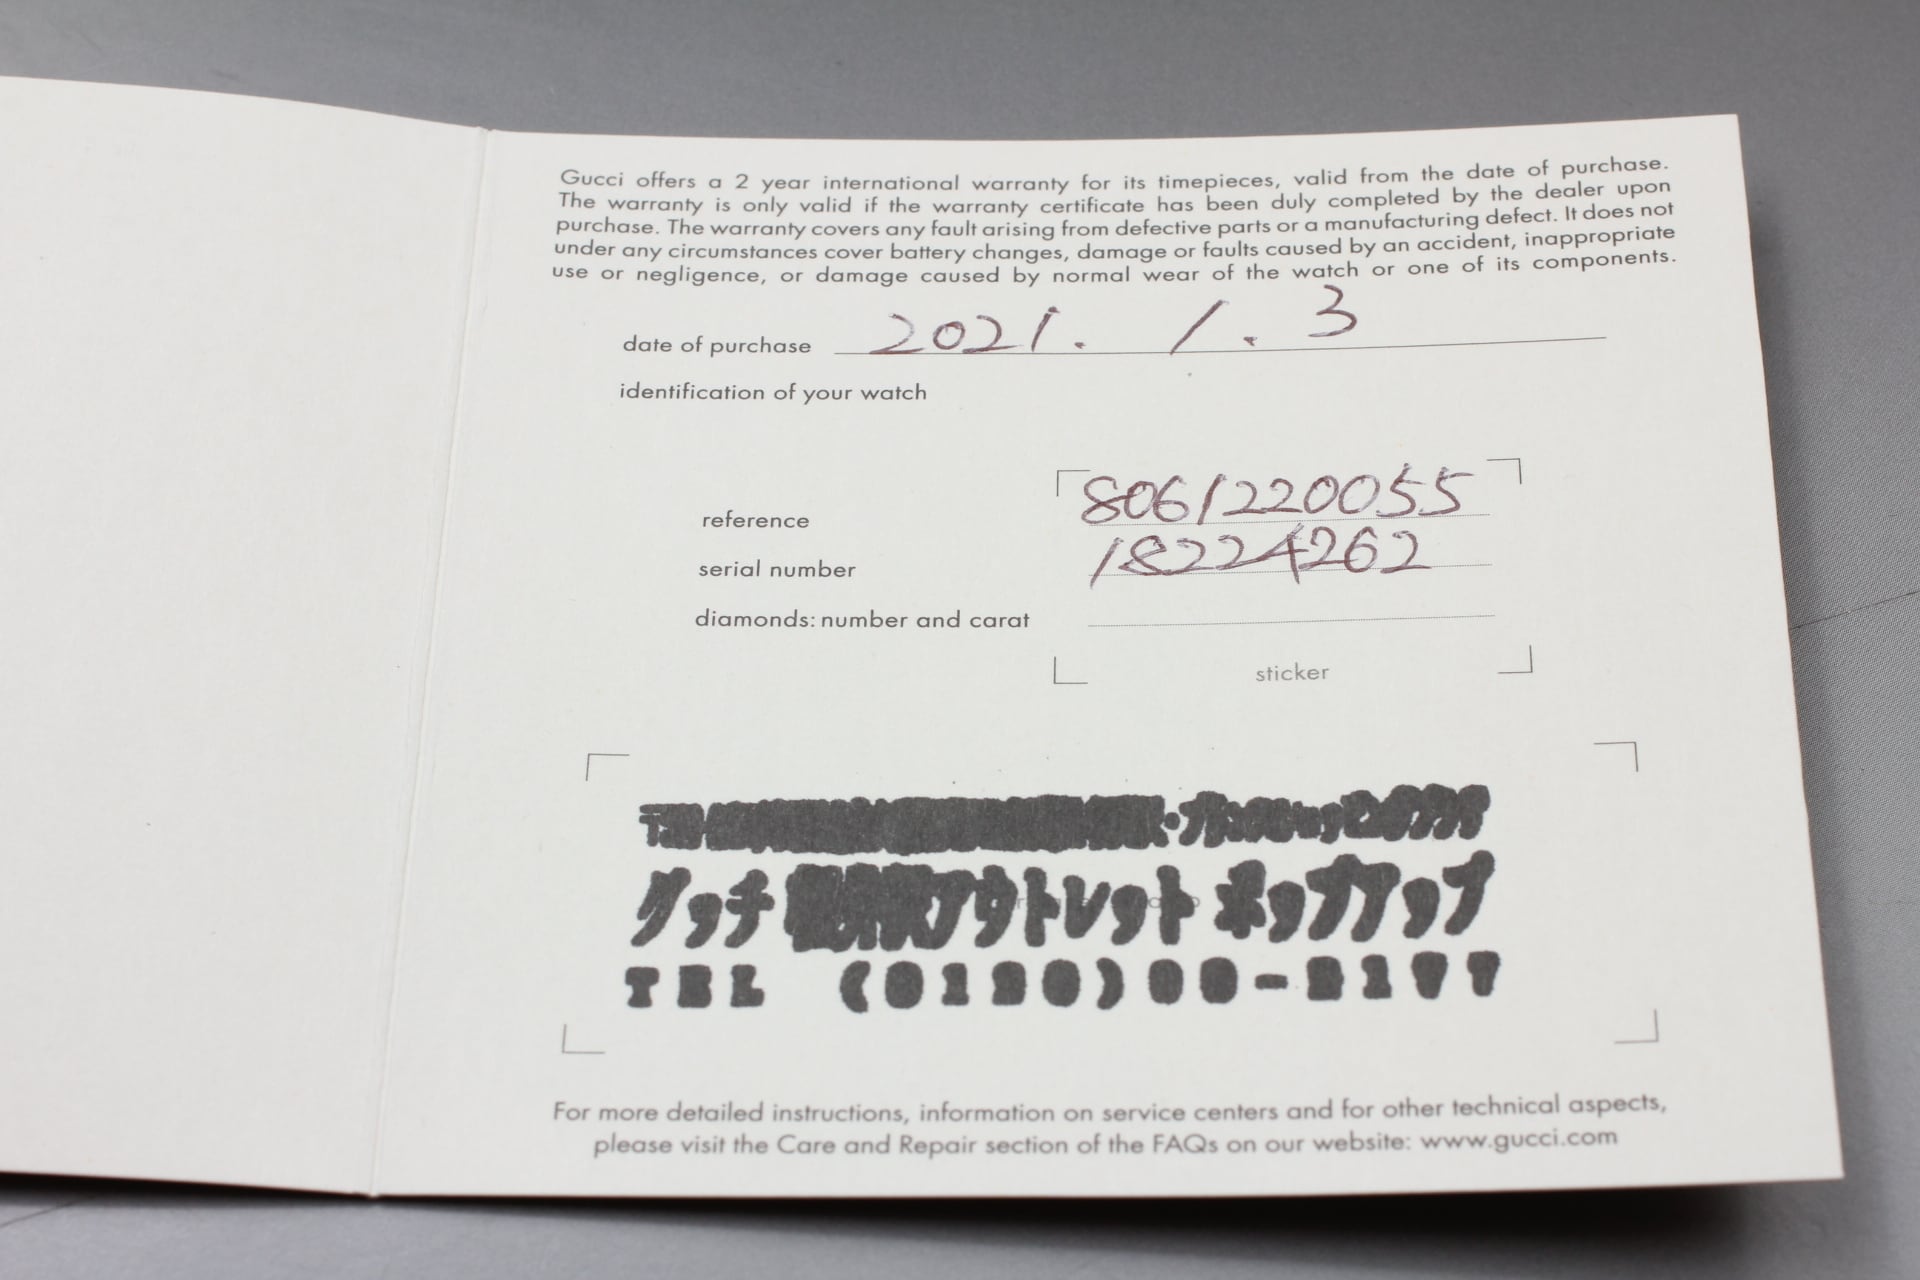 Gucci offers a 2 year international warranty for its timepieces, valid from the date of purchase.
The warranty is only valid if the warranty certificate has been duly completed by the dealer upon
purchase. The warranty covers any fault arising from defective parts or a manufacturing defect. It does not
under any circumstances cover battery changes, damage or faults caused by an accident, inappropriate
use or negligence, or damage caused by normal wear of the watch or one of its components.
date of purchase 2021. 1. 3
identification of your watch
reference 8061220055
serial number 18224262
diamonds: number and carat
sticker
グッチ アウトレット ポップアップ
TEL
For more detailed instructions, information on service centers and for other technical aspects,
please visit the Care and Repair section of the FAQs on our website: www.gucci.com